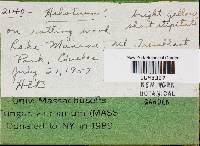 2140- Helotium? bright yellow
on rotting wood short stipitate
Lake Monroe, Mt. Tremblant
Park, Quebec
July 21, 1957
HEB
NEW YORK
BOTANICAL
GARDEN
Univ. Massachusetts
Fungus Herbarium (MASS)
Donated to NY in 1989